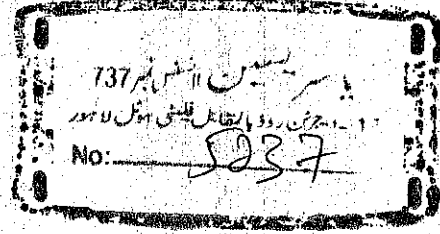 یاسر یسین لائسنس نمبر 737
روڈ بالمقابل فلیٹی ہوٹل لاہور
No: 5037